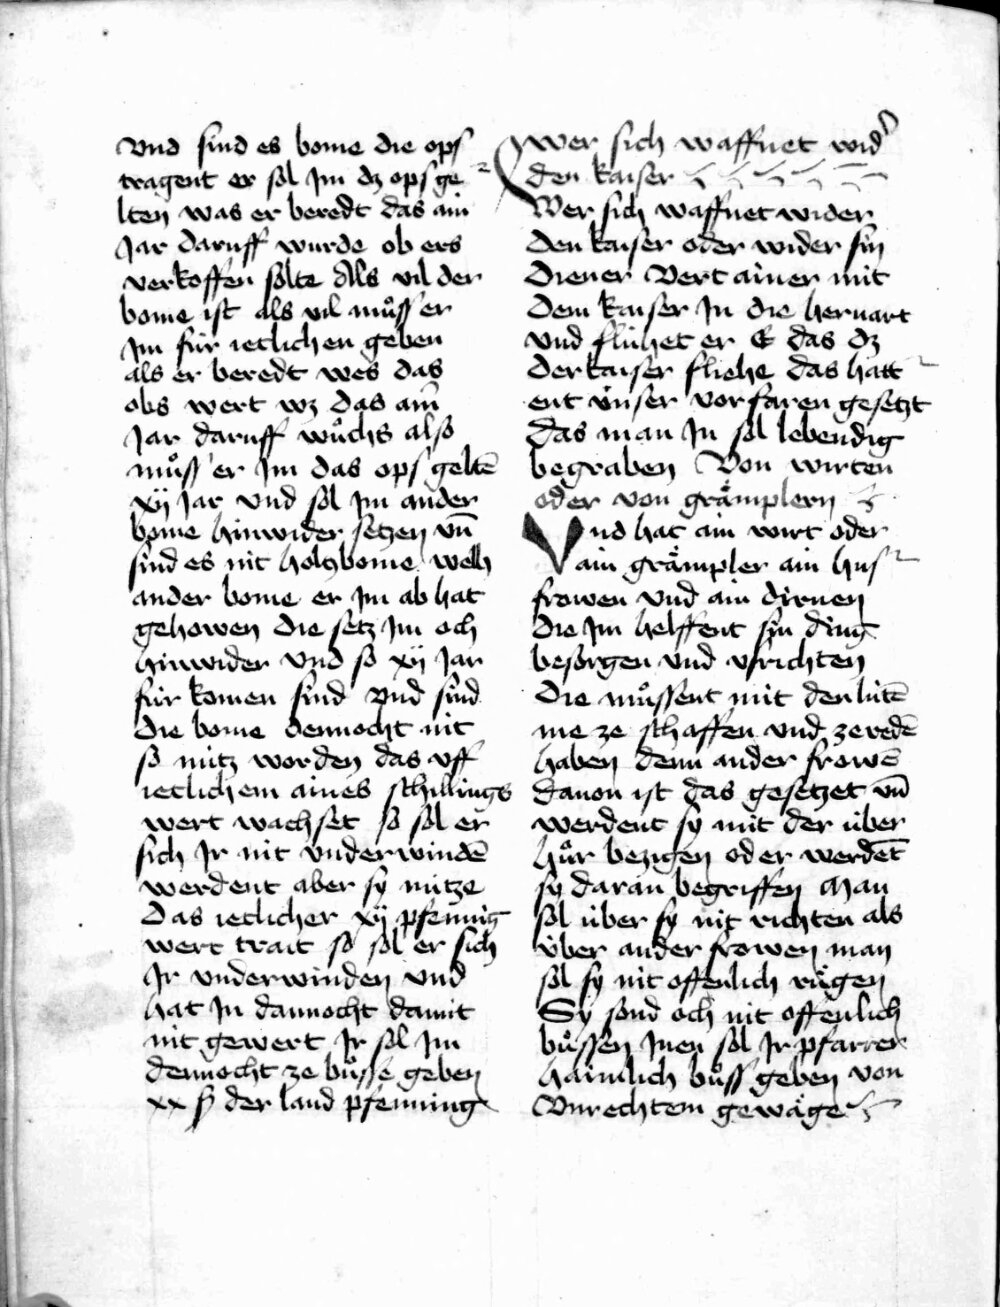 Vnd sind es bome die ops
tragent er sol Jm dz ops ge
lten was er beredt das ain
Jar daruff wurde ob ers
verkoffen solte Als vil der
bome ist als vil můss er
Jm für ietlichen geben
als er beredt wes das
obs wert wz das ain
Jar daruff wůchs also
můss er Jm das ops geltē
xij Jar vnd sol Jm ander
bome hinwider setzen vn̄
sind es nit holtzbome welh
ander bome er Jm ab hat
gehowen die setz Jm och
hinwider vnd so xij Jar
für komen sind vnd sind
die bome dennocht nit
so nütz worden das vff
ietlichem aines schillings
wert wachset so sol er
sich Jr nit vnderwindē
werdent aber sy nütze
Das ietlicher xij pfennig
wert trait so sol er sich
Jr vnderwinden vnd
hat Jn dannocht damit
nit gewert Jr sol Jm
dennocht ze bůsse geben
xx ß der land pfenning
Wer sich waffnet wid̕
den kaiser
Wer sich waffnet wider
den kaiser oder wider sin
Diener Vert ainer mit
Dem kaiser Jn die heruart
vnd flühet er E das dz
der kaiser fliehe das hatt
ent vnser vorfaren gesetzt
das man Jn sol lebendig
begraben Von wirten
oder von grämplern
Vnd hat ain wirt oder
ain grämpler ain hus
frowen vnd ain dirnen
die Jm helffent sin ding
besorgen vnd vsrichten
Die můssent mit den lütē
me ze schaffen vnd ze redē
haben denn ander frowē
dauon ist das gesetzet vn̄
werdent sy mit der über
hůr bezigen oder werdēt
sy daran begriffen Man
sol über sy nit richten als
über ander frowen man
sol sy nit offenlich rügen
Sy sond och nit offenlich
bůssen Jnen sol Jr pfarrer
haimlich bůss geben von
Vnrechtem gewäge